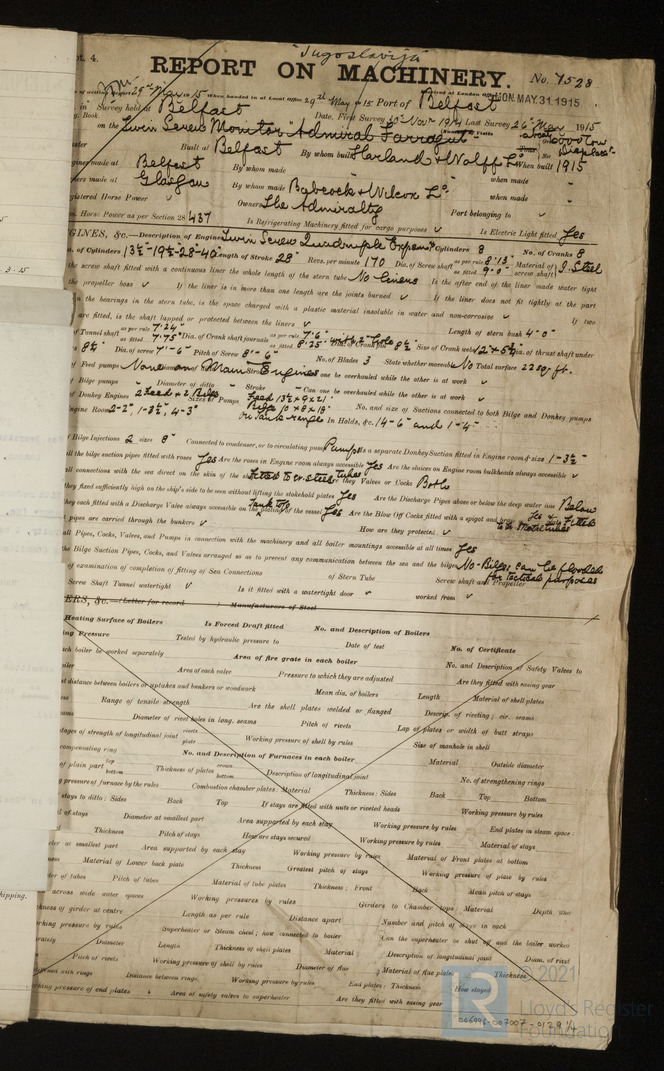 "Jugoslavija"
pt. 4.
REPORT ON MACHINERY. No. 7528
Received at London Office MON. MAY. 31. 1915
29th May 1915 When handed in at Local Office 29th May 1915 Port of Belfast
in Survey held at Belfast Date, First Survey 30th Nov. 1914 Last Survey 26th May 1915
Book. on the Twin Screw Monitor "Admiral Farragut"
Built at Belfast By whom built Harland & Wolff Ld When built 1915
Engines made at Belfast By whom made " when made "
made at Glasgow By whom made Babcock & Wilcox Ld when made "
Registered Horse Power Owners The Admiralty Port belonging to
Horse Power as per Section 28 437 Is Refrigerating Machinery fitted for cargo purposes Is Electric Light fitted Yes
ENGINES, &c.—Description of Engines Twin Screw Quadruple Expansn Cylinders 8 No. of Cranks 8
of Cylinders 13½"-19½"-28-40" Length of Stroke 28" Revs. per minute 170 Dia. of Screw shaft as per rule 8.13" as fitted 9.0" Material of screw shaft I. Steel
the screw shaft fitted with a continuous liner the whole length of the stern tube No Liners Is the after end of the liner made water tight
the propeller boss If the liner is in more than one length are the joints burned If the liner does not fit tightly at the part
in the bearings in the stern tube, is the space charged with a plastic material insoluble in water and non-corrosive If two
are fitted, is the shaft lapped or protected between the liners Length of stern bush 4'-0"
of Tunnel shaft as per rule 7.24" as fitted 7.75" Dia. of Crank shaft journals as per rule 7.6" as fitted 8.25" with 2" hole Dia. of Crank pin 8½" Size of Crank webs 12" x 5¼" Dia. of thrust shaft under
8½" Dia. of screw 7'-6" Pitch of Screw 8'-6" No. of Blades 3 State whether moveable No Total surface 22 sq. ft.
of Feed pumps None on Main Engines Can one be overhauled while the other is at work
of Bilge pumps " Diameter of ditto " Stroke " Can one be overhauled while the other is at work
of Donkey Engines 2 Feed + 2 Bilge Sizes of Pumps Feed 13½ x 9 x 21" Bilge 10 x 8 x 18" No. and size of Suctions connected to both Bilge and Donkey pumps
Engine Room 2-2", 1-3½", 4-3" In Holds, &c. 14-6" and 1-4"
of Bilge Injections 2 sizes 8" Connected to condenser, or to circulating pump Pumps Is a separate Donkey Suction fitted in Engine room & size 1-3½"
all the bilge suction pipes fitted with roses Yes Are the roses in Engine room always accessible Yes Are the sluices on Engine room bulkheads always accessible
all connections with the sea direct on the skin of the ship Fitted to steel tubes Are they Valves or Cocks Both
they fixed sufficiently high on the ship's side to be seen without lifting the stokehold plates Yes Are the Discharge Pipes above or below the deep water line Below
they each fitted with a Discharge Valve always accessible on the plating of the vessel Yes Are the Blow Off Cocks fitted with a spigot and brass
pipes are carried through the bunkers How are they protected
all Pipes, Cocks, Valves, and Pumps in connection with the machinery and all boiler mountings accessible at all times Yes
the Bilge Suction Pipes, Cocks, and Valves arranged so as to prevent any communication between the sea and the bilges No-Bilges can be flooded for tactical purposes
of examination of completion of fitting of Sea Connections of Stern Tube Screw shaft and Propeller
Screw Shaft Tunnel watertight Is it fitted with a watertight door worked from
ERS, &c.—(Letter for record ) Manufacturers of Steel
Heating Surface of Boilers Is Forced Draft fitted No. and Description of Boilers
ing Pressure Tested by hydraulic pressure to Date of test No. of Certificate
each boiler be worked separately Area of fire grate in each boiler No. and Description of Safety Valves to
boiler Area of each valve Pressure to which they are adjusted Are they fitted with easing gear
st distance between boilers or uptakes and bunkers or woodwork Mean dia. of boilers Length Material of shell plates
Range of tensile strength Are the shell plates welded or flanged Descrip. of riveting: cir. seams
seams Diameter of rivet holes in long. seams Pitch of rivets Lap of plates or width of butt straps
tages of strength of longitudinal joint rivets plate Working pressure of shell by rules Size of manhole in shell
compensating ring No. and Description of Furnaces in each boiler Material Outside diameter
of plain part top bottom Thickness of plates crown bottom Description of longitudinal joint No. of strengthening rings
pressure of furnace by the rules Combustion chamber plates: Material Thickness: Sides Back Top Bottom
stays to ditto: Sides Back Top If stays are fitted with nuts or riveted heads Working pressure by rules
of stays Diameter at smallest part Area supported by each stay Working pressure by rules End plates in steam space:
Thickness Pitch of stays How are stays secured Working pressure by rules Material of stays
ter at smallest part Area supported by each stay Working pressure by rules Material of Front plates at bottom
Material of Lower back plate Thickness Greatest pitch of stays Working pressure of plate by rules
of tubes Pitch of tubes Material of tube plates Thickness: Front Back Mean pitch of stays
across wide water spaces Working pressures by rules Girders to Chamber tops: Material Depth and
kness of girder at centre Length as per rule Distance apart Number and pitch of stays in each
rking pressure by rules Superheater or Steam chest; how connected to boiler Can the superheater be shut off and the boiler worked
rately Diameter Length Thickness of shell plates Material Description of longitudinal joint Diam. of rivet
Pitch of rivets Working pressure of shell by rules Diameter of flue Material of flue plates Thickness
ened with rings Distance between rings Working pressure by rules End plates: Thickness How stayed
rking pressure of end plates Area of safety valves to superheater Are they fitted with easing gear
© 2021
LR
Lloyd's Register
Foundation
006996-007007-0129 1/4
3.15
hipping.